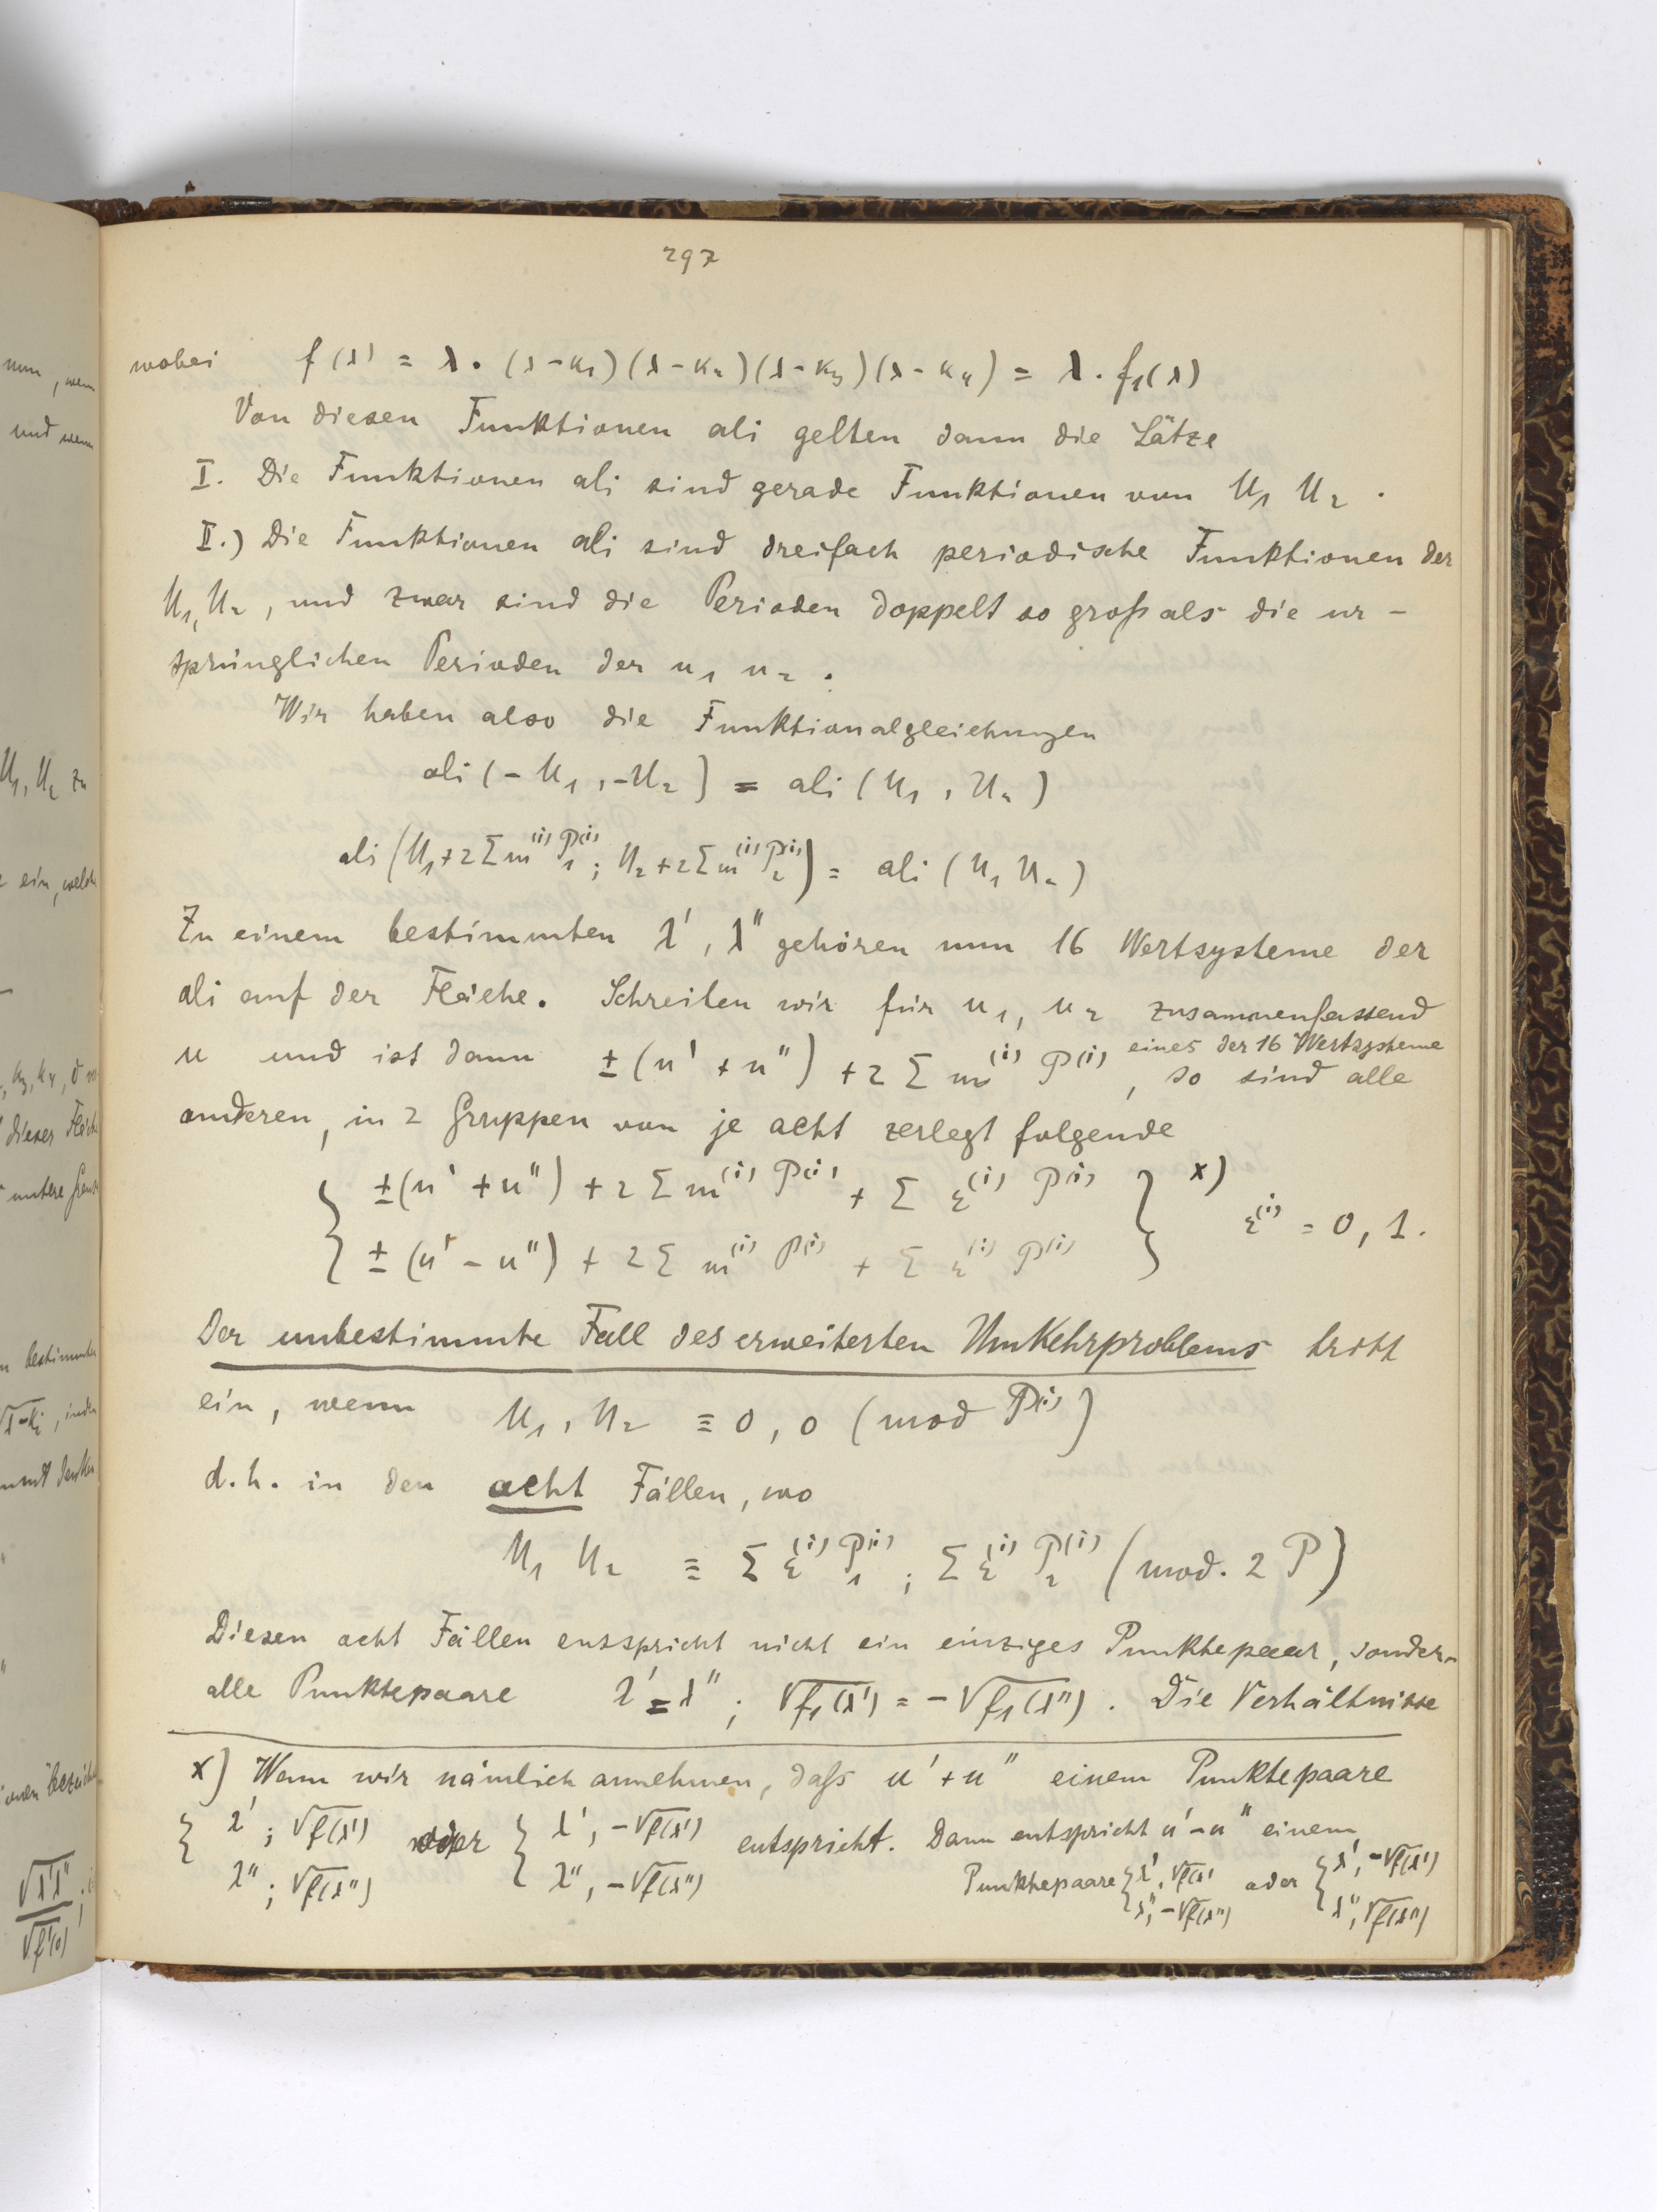 297
wobei f(λ) = λ · (λ-κ₁)(λ-κ₂)(λ-κ₃)(λ-κ₄) = λ · f₁(λ)
Von diesen Funktionen ali gelten dann die Sätze
I. Die Funktionen ali sind gerade Funktionen von U₁ U₂ .
II.) Die Funktionen ali sind dreifach periodische Funktionen der
U₁, U₂ , und zwar sind die Perioden doppelt so groß als die ur-
sprünglichen Perioden der u₁ u₂ .
Wir haben also die Funktionalgleichungen
ali (- U₁ , -U₂ ) = ali ( U₁ , U₂ )
ali (U₁ + 2 Σ m⁽ⁱ⁾ P₁⁽ⁱ⁾ ; U₂ + 2 Σ m⁽ⁱ⁾ P₂⁽ⁱ⁾) = ali ( U₁ U₂ )
Zu einem bestimmten λ', λ'' gehören nun 16 Wertsysteme der
ali auf der Fläche. Schreiben wir für u₁, u₂ zusammenfassend
u und ist dann ± (u' + u'') + 2 Σ m⁽ⁱ⁾ P⁽ⁱ⁾ eines der 16 Wertsysteme , so sind alle
anderen, in 2 Gruppen von je acht zerlegt folgende
{ ± (u' + u'') + 2 Σ m⁽ⁱ⁾ P⁽ⁱ⁾ + Σ ε⁽ⁱ⁾ P⁽ⁱ⁾ } x) ε⁽ⁱ⁾ = 0, 1.
± (u' - u'') + 2 Σ m⁽ⁱ⁾ P⁽ⁱ⁾ + Σ ε⁽ⁱ⁾ P⁽ⁱ⁾
Der unbestimmte Fall des erweiterten Umkehrproblems tritt
ein, wenn U₁ , U₂ ≡ 0, 0 (mod P⁽ⁱ⁾)
d.h. in den acht Fällen, wo
U₁ U₂ ≡ Σ ε⁽ⁱ⁾ P₁⁽ⁱ⁾ ; Σ ε⁽ⁱ⁾ P₂⁽ⁱ⁾ (mod. 2 P)
Diesen acht Fällen entspricht nicht ein einziges Punktepaar, sondern
alle Punktepaare λ' = λ'' ; √f₁(λ') = -√f₁(λ'') . Die Verhältnisse
x) Wenn wir nämlich annehmen, daß u' + u'' einem Punktepaare
{ λ' ; √f(λ') oder { λ' , -√f(λ') entspricht. Dann entspricht u' - u'' einem
λ'' ; √f(λ'') λ'' , -√f(λ'') Punktepaare { λ', √f(λ') oder { λ', -√f(λ')
λ'', -√f(λ'') λ'', √f(λ'')